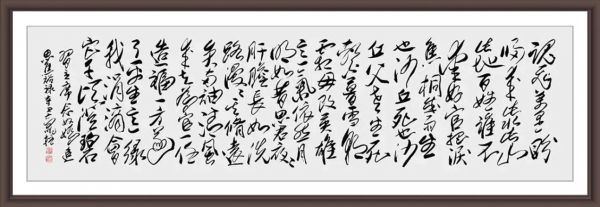 魂飞万里盼
归来此水此山
此地百姓谁不
爱好官把泪
焦桐成雨生
也沙丘死也沙
丘父老生死
系暮雪朝
霜毋改英雄
意气依然月
明如昔思君夜夜
肝胆长如洗
路漫漫其修远
矣两袖清风
来去为官一任
造福一方遂
了平生意绿
我涓滴会
它千顷澄碧
习主席念奴娇追
思焦裕禄辛丑